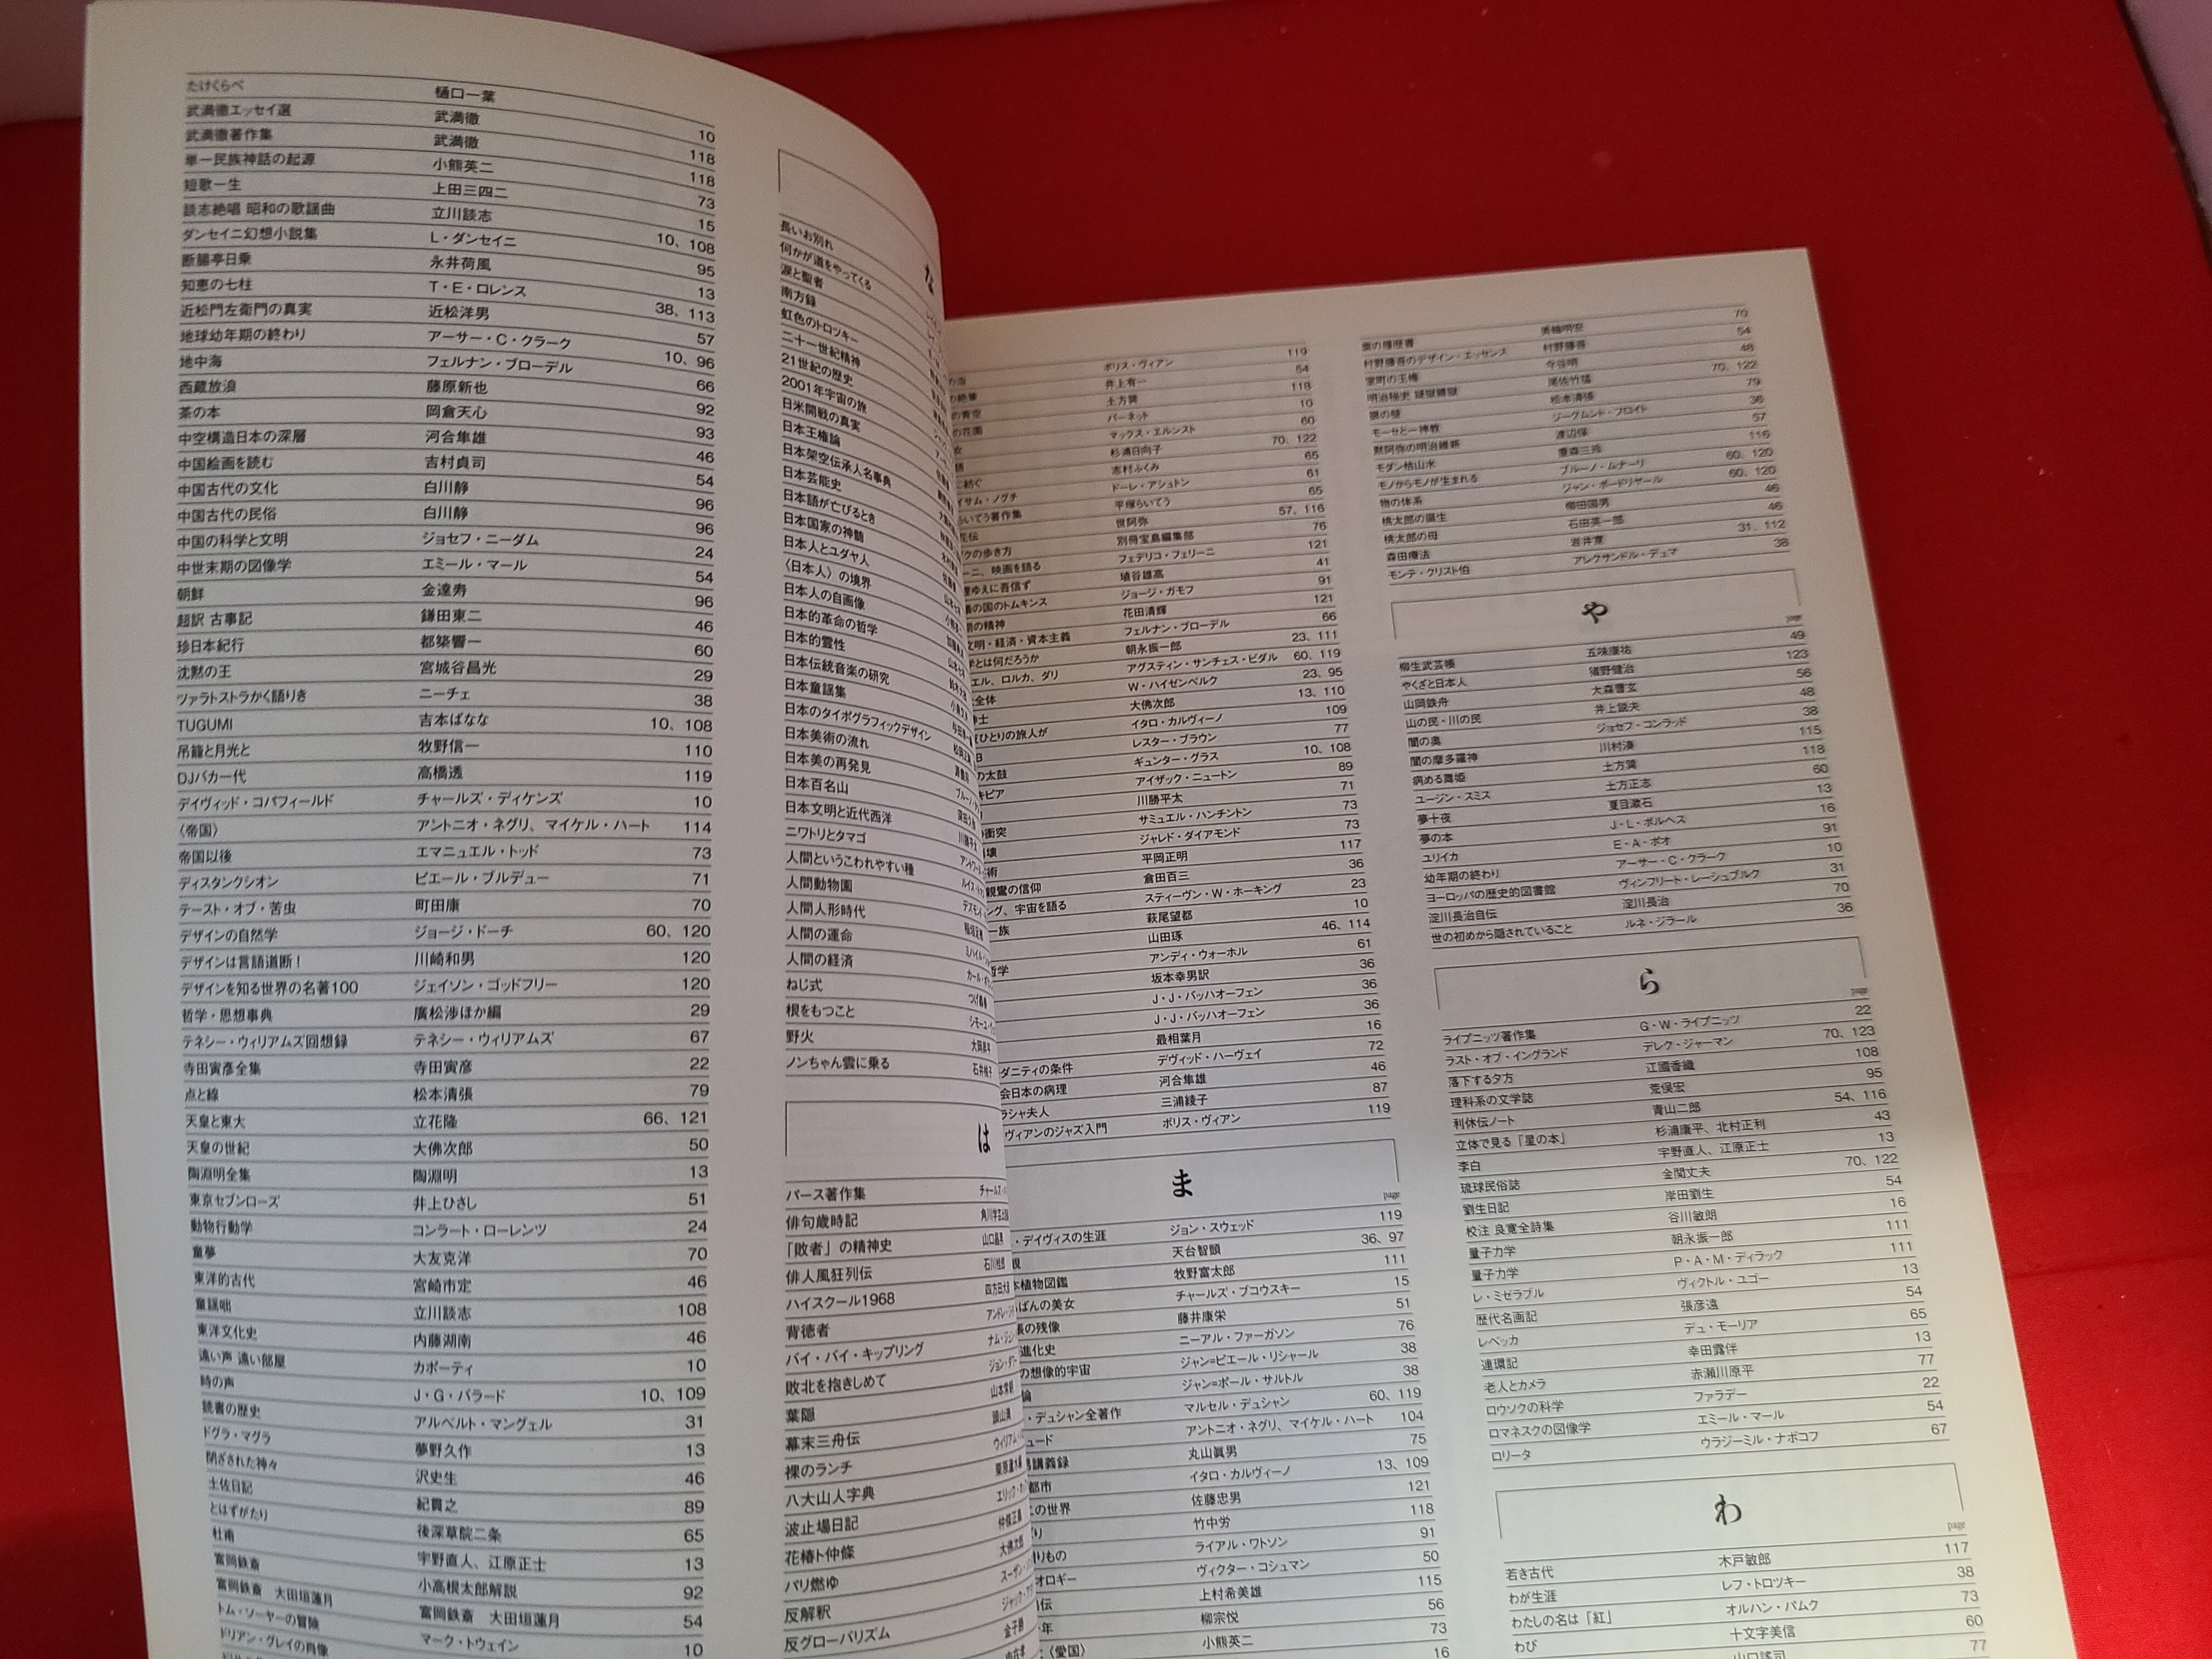 たけくらべ 樋口一葉 10
武満徹エッセイ選 武満徹 118
武満徹著作集 武満徹 118
単一民族神話の起源 小熊英二 73
短歌一生 上田三四二 15
談志絶唱 昭和の歌謡曲 立川談志 10、108
ダンセイニ幻想小説集 L・ダンセイニ 95
断腸亭日乗 永井荷風 13
知恵の七柱 T・E・ロレンス 38、113
近松門左衛門の真実 近松洋男 57
地球幼年期の終わり アーサー・C・クラーク 10、96
地中海 フェルナン・ブローデル 66
西蔵放浪 藤原新也 92
茶の本 岡倉天心 93
中空構造日本の深層 河合隼雄 46
中国絵画を読む 吉村貞司 54
中国古代の文化 白川静 96
中国古代の民俗 白川静 96
中国の科学と文明 ジョセフ・ニーダム 24
中世末期の図像学 エミール・マール 54
朝鮮 金達寿 96
超訳 古事記 鎌田東二 46
珍日本紀行 都築響一 60
沈黙の王 宮城谷昌光 29
ツァラトストラかく語りき ニーチェ 38
TUGUMI 吉本ばなな 10、108
吊籠と月光と 牧野信一 110
DJバカ一代 高橋透 119
デイヴィッド・コパフィールド チャールズ・ディケンズ 10
〈帝国〉 アントニオ・ネグリ、マイケル・ハート 114
帝国以後 エマニュエル・トッド 73
ディスタンクシオン ピエール・ブルデュー 71
テースト・オブ・苦虫 町田康 70
デザインの自然学 ジョージ・ドーチ 60、120
デザインは言語道断！ 川崎和男 120
デザインを知る世界の名著100 ジェイソン・ゴッドフリー 120
哲学・思想事典 廣松渉ほか編 29
テネシー・ウィリアムズ回想録 テネシー・ウィリアムズ 67
寺田寅彦全集 寺田寅彦 22
点と線 松本清張 79
天皇と東大 立花隆 66、121
天皇の世紀 大佛次郎 50
陶淵明全集 陶淵明 13
東京セブンローズ 井上ひさし 51
動物行動学 コンラート・ローレンツ 24
童夢 大友克洋 70
東洋的古代 宮崎市定 46
童謡咄 立川談志 108
東洋文化史 内藤湖南 46
遠い声 遠い部屋 カポーティ 10
時の声 J・G・バラード 10、109
読書の歴史 アルベルト・マングェル 31
ドグラ・マグラ 夢野久作 13
閉ざされた神々 沢史生 46
土佐日記 紀貫之 89
とはずがたり 後深草院二条 65
杜甫 宇野直人、江原正士 13
富岡鉄斎 小高根太郎解説 92
富岡鉄斎 大田垣蓮月 富岡鉄斎 大田垣蓮月 54
トム・ソーヤーの冒険 マーク・トウェイン 10
ドリアン・グレイの肖像
な
長いお別れ
何かが道をやってくる
涙と聖者
南方録
虹色のトロツキー
二十一世紀精神
21世紀の歴史
2001年宇宙の旅
日米開戦の真実
日本王権論
日本架空伝承人名事典
日本芸能史
日本語が亡びるとき
日本国家の神髄
日本人とユダヤ人
〈日本人〉の境界
日本人の自画像
日本的革命の哲学
日本的霊性
日本伝統音楽の研究
日本童謡集
日本のタイポグラフィックデザイン
日本美術の流れ
日本美の再発見
日本百名山
日本文明と近代西洋
ニワトリとタマゴ
人間というこわれやすい種
人間動物園
人間人形時代
人間の運命
人間の経済
ねじ式
根をもつこと
野火
ノンちゃん雲に乗る
は
パース著作集
俳句歳時記
「敗者」の精神史
俳人風狂列伝
ハイスクール1968
背徳者
バイ・バイ・キップリング
敗北を抱きしめて
葉隠
幕末三舟伝
裸のランチ
八大山人字典
波止場日記
花椿ト仲條
パリ燃ゆ
反解釈
反グローバリズム
ボリス・ヴィアン 119
井上有一 54
土方巽 118
バーネット 10
マックス・エルンスト 60
杉浦日向子 70、122
志村ふくみ 65
サム・ノグチ ドーレ・アシュトン 61
らいてう著作集 平塚らいてう 65
花伝 世阿弥 57、116
クの歩き方 別冊宝島編集部 76
ーニ、映画を語る フェデリコ・フェリーニ 121
ゆえに吾信ず 埴谷雄高 41
の国のトムキンス ジョージ・ガモフ 91
の精神 花田清輝 121
文明・経済・資本主義 フェルナン・ブローデル 66
学とは何だろうか 朝永振一郎 23、111
エル、ロルカ、ダリ アグスティン・サンチェス・ビダル 60、119
全体 W・ハイゼンベルク 23、95
士 大佛次郎 13、110
ひとりの旅人が イタロ・カルヴィーノ 109
B レスター・ブラウン 77
の太鼓 ギュンター・グラス 10、108
キピア アイザック・ニュートン 89
川勝平太 71
衝突 サミュエル・ハンチントン 73
壊 ジャレド・ダイアモンド 73
術 平岡正明 117
親鸞の信仰 倉田百三 36
ング、宇宙を語る スティーヴン・W・ホーキング 23
一族 萩尾望都 10
山田琢 46、114
哲学 アンディ・ウォーホル 61
坂本幸男訳 36
J・J・バッハオーフェン 36
J・J・バッハオーフェン 36
最相葉月 16
ダニティの条件 デヴィッド・ハーヴェイ 72
会日本の病理 河合隼雄 46
ラシャ夫人 三浦綾子 87
ヴィアンのジャズ入門 ボリス・ヴィアン 119
ま
page
・デイヴィスの生涯 ジョン・スウェッド 119
説 天台智顗 36、97
本植物図鑑 牧野富太郎 111
ばんの美女 チャールズ・ブコウスキー 15
の残像 藤井康栄 51
進化史 ニーアル・ファーガソン 76
の想像的宇宙 ジャン=ピエール・リシャール 38
論 ジャン=ポール・サルトル 38
・デュシャン全著作 マルセル・デュシャン 60、119
ュード アントニオ・ネグリ、マイケル・ハート 104
講義録 丸山眞男 75
都市 イタロ・カルヴィーノ 13、109
この世界 佐藤忠男 121
り 竹中労 118
りもの ライアル・ワトソン 91
オロギー ヴィクター・コシュマン 50
伝 上村希美雄 115
年 柳宗悦 56
〈愛国〉 小熊英二 73
16
紫の履歴書 美輪明宏 70
村野藤吾のデザイン・エッセンス 村野藤吾 54
室町の王権 今谷明 46
明治秘史 疑獄難獄 尾佐竹猛 70、122
眼の壁 松本清張 79
モーセと一神教 ジークムント・フロイト 36
黙阿弥の明治維新 渡辺保 57
モダン枯山水 重森三玲 116
モノからモノが生まれる ブルーノ・ムナーリ 60、120
物の体系 ジャン・ボードリヤール 60、120
桃太郎の誕生 柳田国男 46
桃太郎の母 石田英一郎 46
森田療法 岩井寛 31、112
モンテ・クリスト伯 アレクサンドル・デュマ 38
や
page
柳生武芸帳 五味康祐 49
やくざと日本人 猪野健治 123
山岡鉄舟 大森曹玄 56
山の民・川の民 井上鋭夫 48
闇の奥 ジョセフ・コンラッド 38
闇の摩多羅神 川村湊 115
病める舞姫 土方巽 118
ユージン・スミス 土方正志 60
夢十夜 夏目漱石 13
夢の本 J・L・ボルヘス 16
ユリイカ E・A・ポオ 91
幼年期の終わり アーサー・C・クラーク 10
ヨーロッパの歴史的図書館 ヴィンフリート・レーシュブルク 31
淀川長治自伝 淀川長治 70
世の初めから隠されていること ルネ・ジラール 36
ら
page
ライプニッツ著作集 G・W・ライプニッツ 22
ラスト・オブ・イングランド デレク・ジャーマン 70、123
落下する夕方 江國香織 108
理科系の文学誌 荒俣宏 95
利休伝ノート 青山二郎 54、116
立体で見る「星の本」 杉浦康平、北村正利 43
李白 宇野直人、江原正士 13
琉球民俗誌 金関丈夫 70、122
劉生日記 岸田劉生 54
校注 良寛全詩集 谷川敏朗 16
量子力学 朝永振一郎 111
量子力学 P・A・M・ディラック 111
レ・ミゼラブル ヴィクトル・ユゴー 13
歴代名画記 張彦遠 54
レベッカ デュ・モーリア 65
連環記 幸田露伴 13
老人とカメラ 赤瀬川原平 77
ロウソクの科学 ファラデー 22
ロマネスクの図像学 エミール・マール 54
ロリータ ウラジーミル・ナボコフ 67
わ
page
若き古代 木戸敏郎 117
わが生涯 レフ・トロツキー 38
わたしの名は「紅」 オルハン・パムク 73
わび 十文字美信 60
山口謠司 77